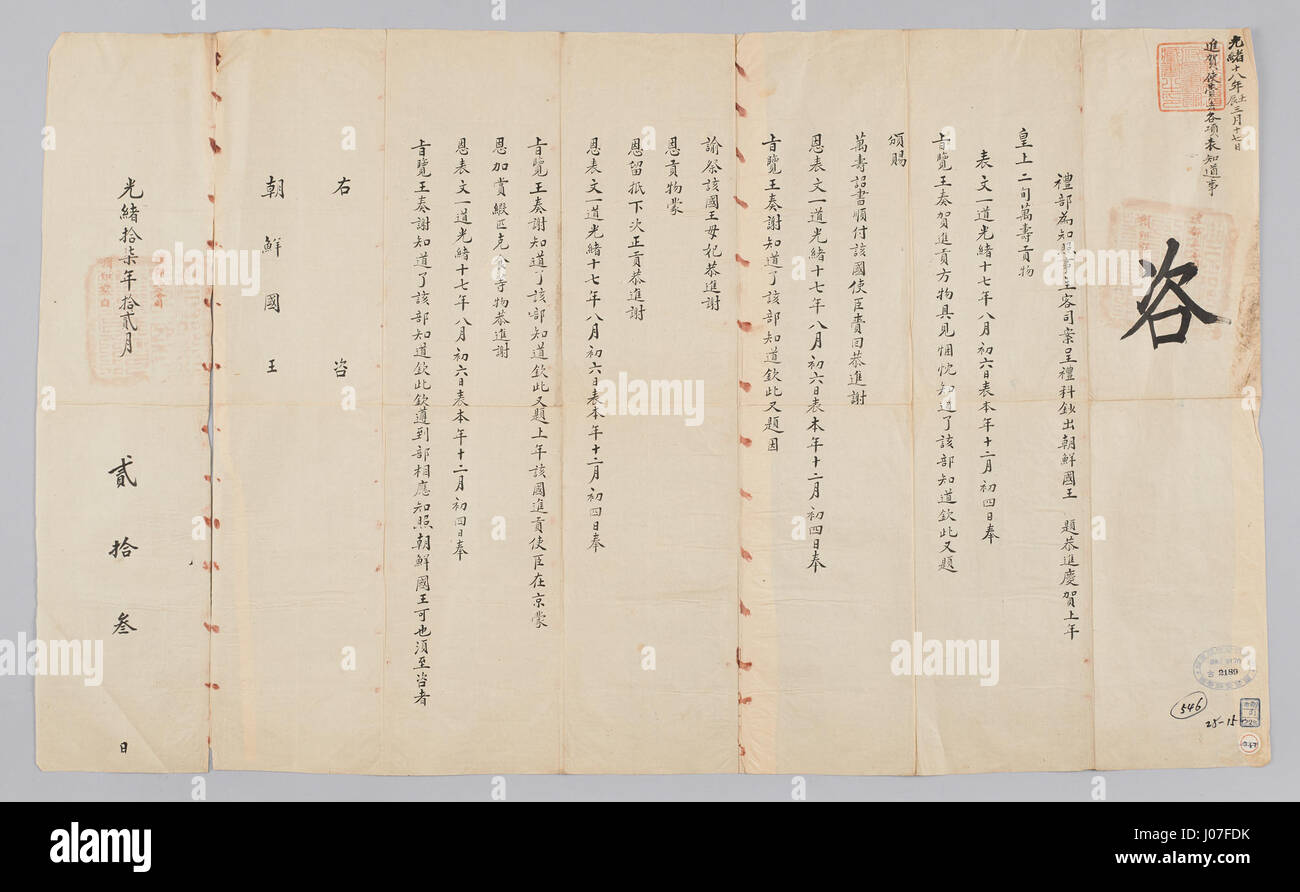 光緒十八年壬辰三月十七日
進賀使賫咨各項表知道事
咨
禮部為知照事主客司案呈禮科鈔出朝鮮國王 題恭進慶賀上年
皇上二旬萬壽貢物
表文一道光緒十七年八月初六日表本年十二月初四日奉
旨覽王奏賀進貢方物具見悃忱知道了該部知道欽此又題
頒賜
萬壽詔書順付該國使臣賫回恭進謝
恩表文一道光緒十七年八月初六日表本年十二月初四日奉
旨覽王奏謝知道了該部知道欽此又題因
諭祭該國王母妃恭進謝
恩貢物蒙
恩留抵下次正貢恭進謝
恩表文一道光緒十七年八月初六日表本年十二月初四日奉
旨覽王奏謝知道了該部知道欽此又題上年該國進貢使臣在京蒙
恩加賞緞匹克食等物恭進謝
恩表文一道光緒十七年八月初六日表本年十二月初四日奉
旨覽王奏謝知道了該部知道欽此欽遵到部相應知照朝鮮國王可也須至咨者
右咨
朝鮮國王
光緒拾柒年拾貳月 貳拾叁 日
古 2189
546
25-15
alamy
Image ID: J07FDK
www.alamy.com